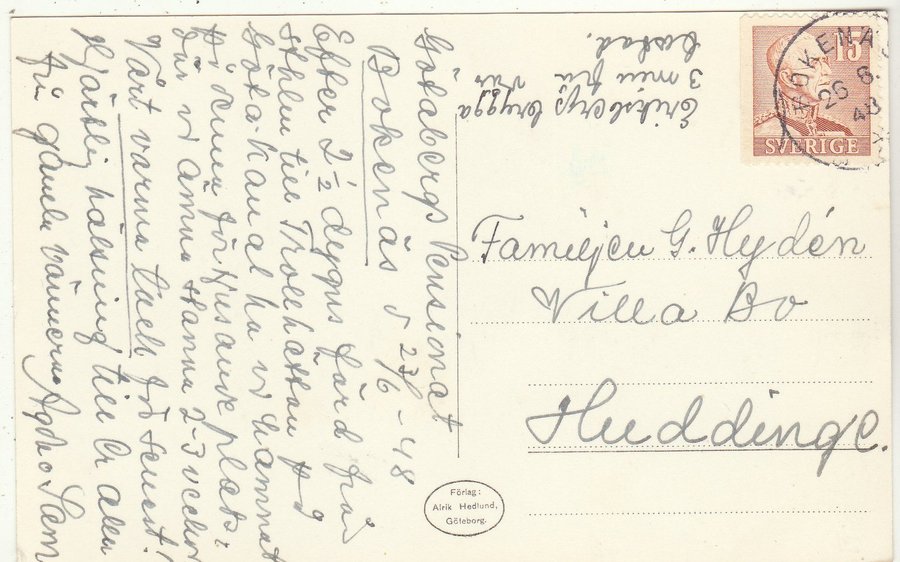 Götabergs Pensionat
Bokenäs d 23/6 - 48
Efter 2 1/2 dygns färd från
Sthlm till Trollhättan på
Göta-kanal ha vi hamnat
på denna förtjusande plats,
där vi ämna stanna 2-3 veckor
Vårt varma tack för senast!
Hjärtlig hälsning till Er alla
från gamla vännerna Agda o Sam
Eriksbergs brygga
3 min från vår
bostad.
15
SVERIGE
BOKENÄS
26 6. 48
Familjen G. Hydén
Villa Bo
Huddinge.
Förlag:
Alrik Hedlund,
Göteborg.